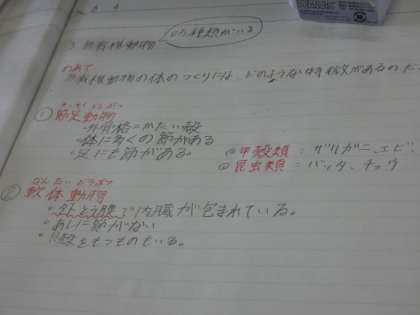 3 無脊椎動物 いろいろ種類がいる
めあて
無脊椎動物の体のつくりには、どのような特徴があるのだ
せっそくどうぶつ
① 節足動物
・外骨格=かたい殻
・体に多くの節がある
・足にも節がある。
甲殻類:ザリガニ、エビ、
昆虫類:バッタ、チョウ
なんたいどうぶつ
② 軟体動物
・外とう膜で内臓が包まれている。
・あしに節がない
・殻をもつものもいる。